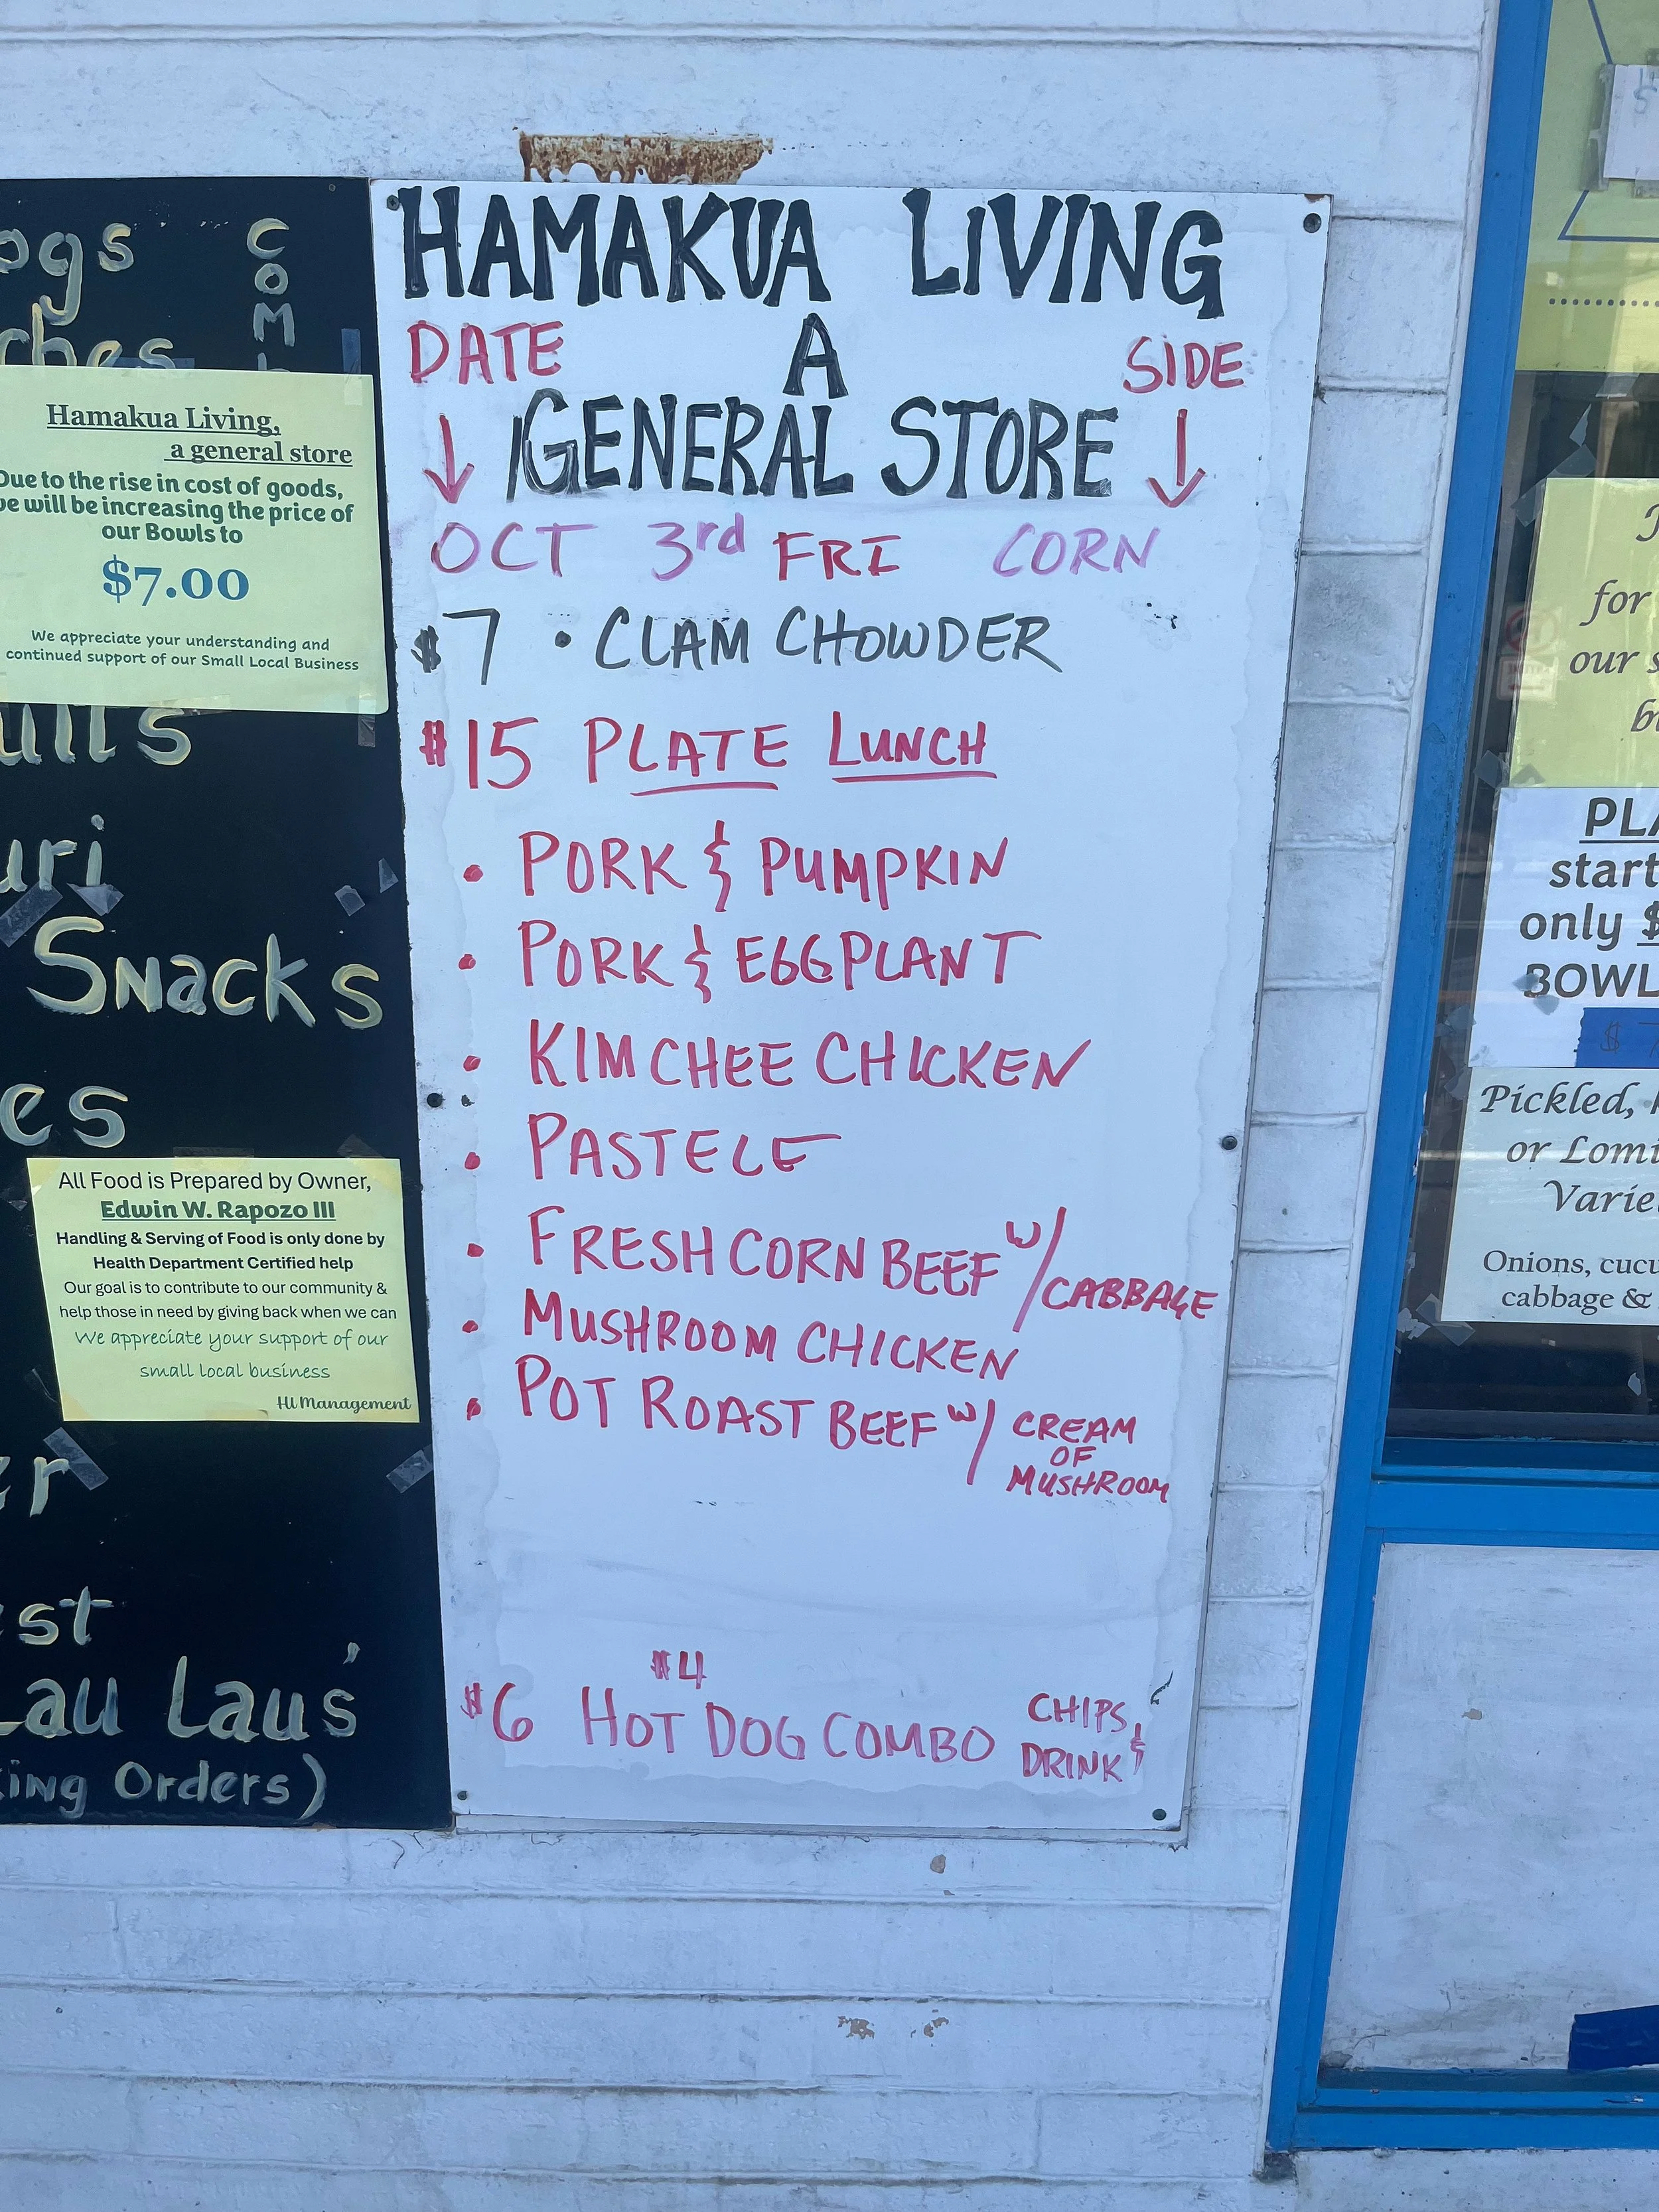 ogs
COM
ches
Hamakua Living,
a general store
Due to the rise in cost of goods,
we will be increasing the price of
our Bowls to
$7.00
We appreciate your understanding and
continued support of our Small Local Business
uri
Snacks
es
All Food is Prepared by Owner,
Edwin W. Rapozo III
Handling & Serving of Food is only done by
Health Department Certified help
Our goal is to contribute to our community &
help those in need by giving back when we can
We appreciate your support of our
small local business
HL Management
er
est
Lau Laus'
ing Orders)
HAMAKUA LiVING
DATE A SIDE
GENERAL STORE
OCT 3rd FRI CORN
$7 • CLAM CHOWDER
$15 PLATE LUNCH
• PORK & PUMPKIN
• PORK & EGGPLANT
• KIMCHEE CHICKEN
• PASTELE
• FRESH CORN BEEF w/ CABBAGE
• MUSHROOM CHICKEN
• POT ROAST BEEF w/ CREAM
OF
MUSHROOM
$4
$6 HOT DOG COMBO CHIPS &
DRINK
for
our s
PLA
start
only $
BOWL
$ 7
Pickled,
or Lomi
Varie
Onions, cucu
cabbage &